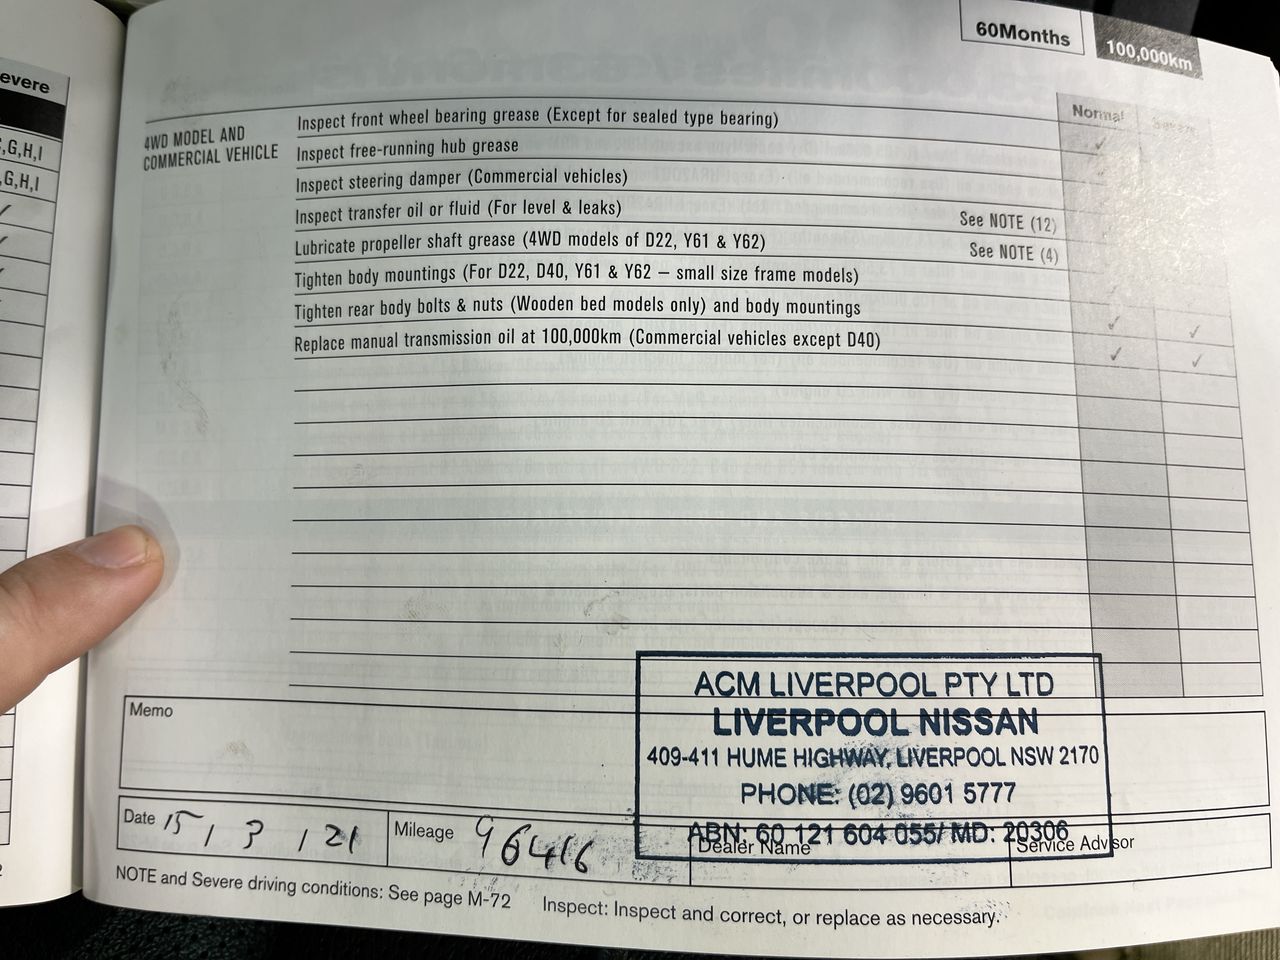 60Months
100,000km
evere
,G,H,I
,G,H,I
Normal Severe
4WD MODEL AND
COMMERCIAL VEHICLE
Inspect front wheel bearing grease (Except for sealed type bearing)
Inspect free-running hub grease ✓
Inspect steering damper (Commercial vehicles)
Inspect transfer oil or fluid (For level & leaks) See NOTE (12)
Lubricate propeller shaft grease (4WD models of D22, Y61 & Y62) See NOTE (4)
Tighten body mountings (For D22, D40, Y61 & Y62 – small size frame models)
Tighten rear body bolts & nuts (Wooden bed models only) and body mountings ✓ ✓
Replace manual transmission oil at 100,000km (Commercial vehicles except D40) ✓ ✓
ACM LIVERPOOL PTY LTD
LIVERPOOL NISSAN
409-411 HUME HIGHWAY, LIVERPOOL NSW 2170
PHONE: (02) 9601 5777
ABN: 60 121 604 055/ MD: 20306
Memo
Date 15 / 3 / 21
Mileage 96416
Dealer Name
Service Advisor
NOTE and Severe driving conditions: See page M-72 Inspect: Inspect and correct, or replace as necessary.